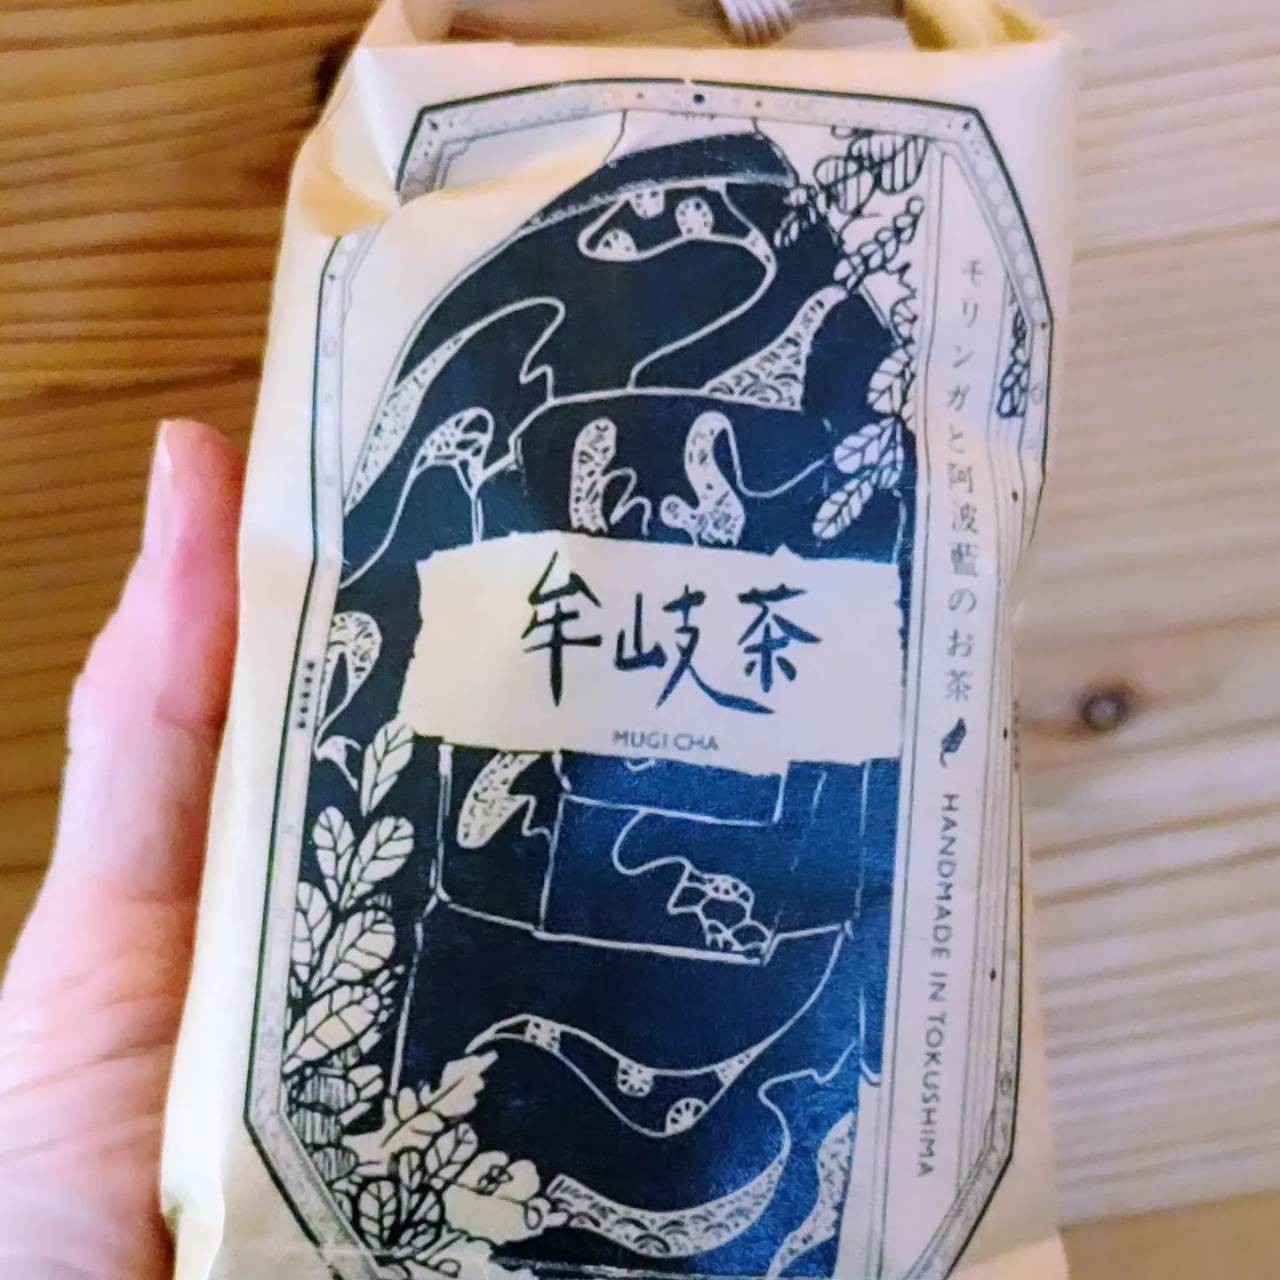 牟岐茶
MUGI CHA
モリンガと阿波藍のお茶
HANDMADE IN TOKUSHIMA